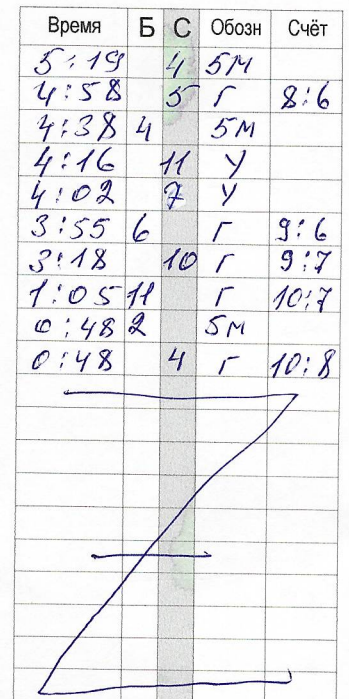 Время Б С Обозн Счёт
5:19 4 5М
4:58 5 Г 8:6
4:38 4 5М
4:16 11 У
4:02 7 У
3:55 6 Г 9:6
3:18 10 Г 9:7
1:05 11 Г 10:7
0:48 2 5М
0:48 4 Г 10:8